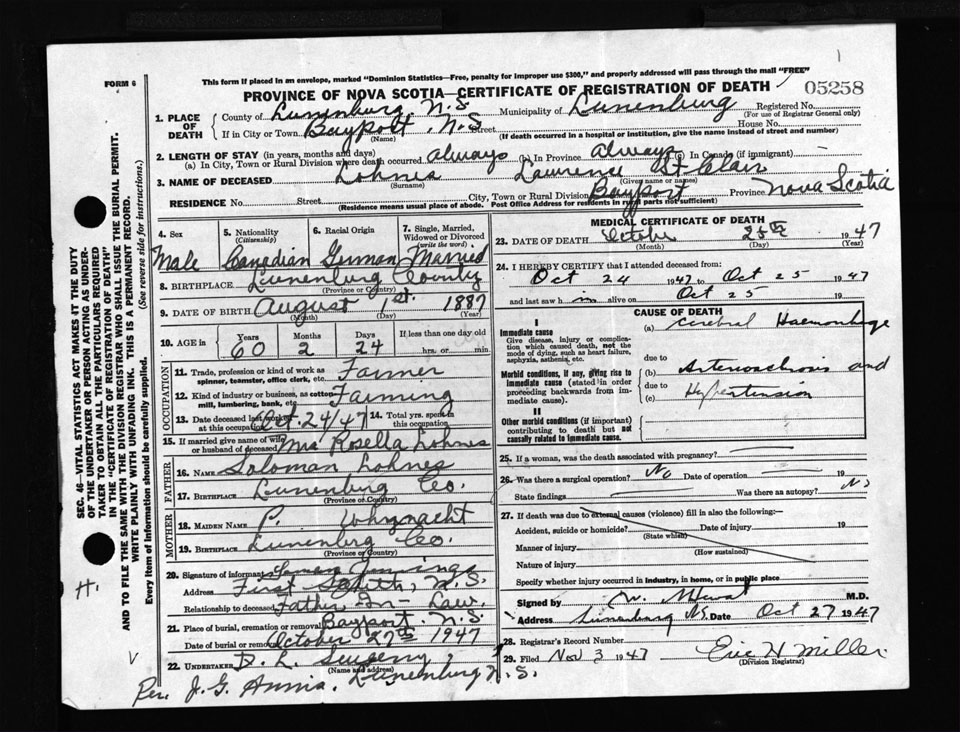 FORM 6
This form if placed in an envelope, marked "Dominion Statistics—Free, penalty for improper use $300," and properly addressed will pass through the mail "FREE"
PROVINCE OF NOVA SCOTIA—CERTIFICATE OF REGISTRATION OF DEATH
05258
1. PLACE OF DEATH
County of Lunenburg N.S. Municipality of Lunenburg Registered No.
(For use of Registrar General only)
If in City or Town Bayport N.S. Street House No.
(Name) (If death occurred in a hospital or institution, give the name instead of street and number)
2. LENGTH OF STAY (in years, months and days)
(a) In City, Town or Rural Division where death occurred always (b) In Province Always (c) In Canada (if immigrant)
3. NAME OF DECEASED Lohnes Lawrence St Clair
(Surname) (Given name or names)
RESIDENCE No. Street City, Town or Rural Division Bayport Province Nova Scotia
(Residence means usual place of abode. Post Office Address for residents in rural parts not sufficient)
4. Sex
Male
5. Nationality
(Citizenship)
Canadian
6. Racial Origin
German
7. Single, Married, Widowed or Divorced
(write the word)
Married
8. BIRTHPLACE Lunenburg County
(Province or Country)
9. DATE OF BIRTH August 1st. 1887
(Month) (Day) (Year)
10. AGE in
Years Months Days If less than one day
60 2 24 hrs. or min.
OCCUPATION
11. Trade, profession or kind of work as spinner, teamster, office clerk, etc. Farmer
12. Kind of industry or business, as cotton mill, lumbering, bank, etc. Farming
13. Date deceased last worked at this occupation Oct. 24/47
14. Total yrs. spent in this occupation
15. If married give name of wife or husband of deceased Mrs Rosella Lohnes
FATHER
16. NAME Soloman Lohnes
17. BIRTHPLACE Lunenburg Co.
(Province or Country)
MOTHER
18. MAIDEN NAME P. Whynacht
19. BIRTHPLACE Lunenbrg Co.
(Province or Country)
20. Signature of informant
Address First South, N.S.
Relationship to deceased Father In Law.
21. Place of burial, cremation or removal Bayport N.S.
Date of burial or removal October 27th 1947
22. UNDERTAKER D. L.
(Name and address)
Lunenburg N.S.
Rev. J. G.
MEDICAL CERTIFICATE OF DEATH
23. DATE OF DEATH October 25th 1947
(Month) (Day) (Year)
24. I HEREBY CERTIFY that I attended deceased from:
Oct 24 1947 to Oct 25 1947
and last saw h im alive on Oct 25 19
CAUSE OF DEATH
I
Immediate cause
Give disease, injury or complication which caused death, not the mode of dying, such as heart failure, asphyxia, asthenia, etc.
(a) Cerebral Haemorrhage
due to
Morbid conditions, if any, giving rise to immediate cause (stated in order proceeding backwards from immediate cause).
(b) Arteriosclerosis and
due to
(c) Hypertension
II
Other morbid conditions (if important) contributing to death but not causally related to immediate cause.
25. If a woman, was the death associated with pregnancy?
26. Was there a surgical operation? No Date of operation 19
State findings Was there an autopsy? No
27. If death was due to external causes (violence) fill in also the following:—
Accident, suicide or homicide? Date of injury 19
(State which)
Manner of injury
(How sustained)
Nature of injury
Specify whether injury occurred in industry, in home, or in public place
Signed by M.D.
Address Lunenburg N.S. Date Oct 27 1947
28. Registrar's Record Number
29. Filed Nov 3 1947 Eric H Miller
(Division Registrar)
SEC. 46— VITAL STATISTICS ACT MAKES IT THE DUTY
OF THE UNDERTAKER OR PERSON ACTING AS UNDERTAKER TO OBTAIN ALL THE PARTICULARS REQUIRED
IN THE "CERTIFICATE OF REGISTRATION OF DEATH"
AND TO FILE THE SAME WITH THE DIVISION REGISTRAR WHO SHALL ISSUE THE BURIAL PERMIT.
WRITE PLAINLY WITH UNFADING INK. THIS IS A PERMANENT RECORD.
Every item of Information should be carefully supplied. (See reverse side for instructions.)
H.